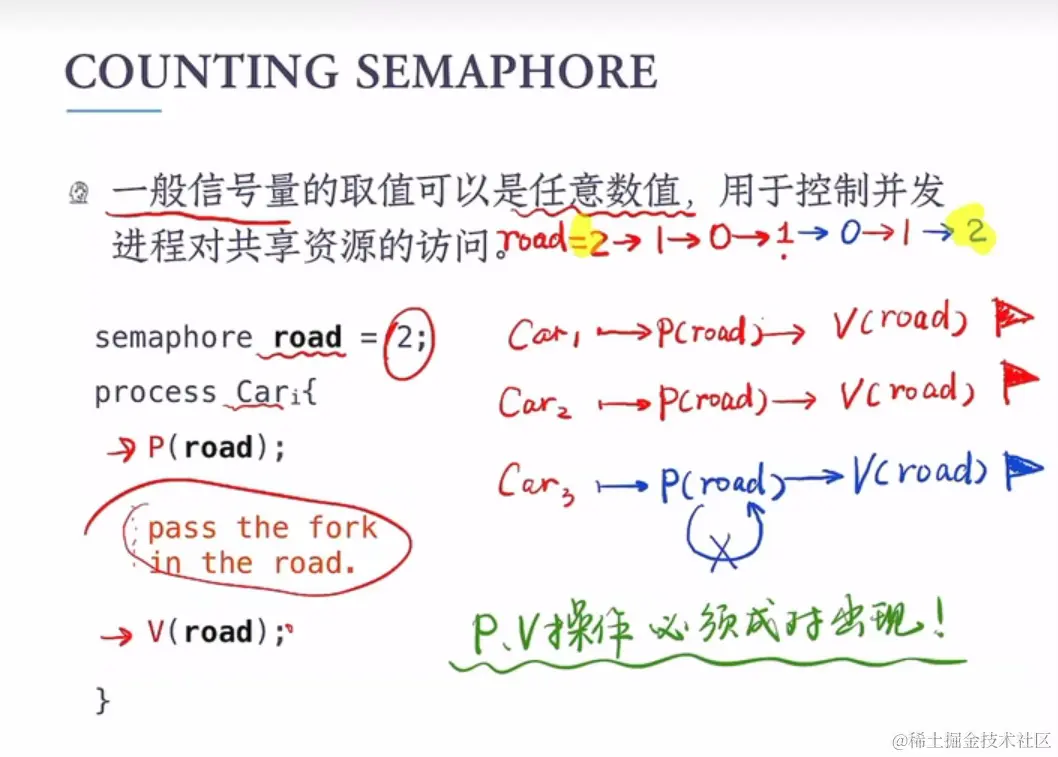 COUNTING SEMAPHORE
一般信号量的取值可以是任意数值，用于控制并发
进程对共享资源的访问。
road=2→1→0→1→0→1→2
semaphore road = 2;
process Carᵢ{
P(road);
pass the fork
in the road.
V(road);
}
Car₁ → P(road) → V(road)
Car₂ → P(road) → V(road)
Car₃ → P(road) → V(road)
P、V操作必须成对出现！
@稀土掘金技术社区